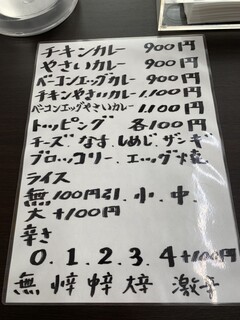 チキンカレー 900円
やさいカレー 900円
ベーコンエッグカレー 900円
チキンやさいカレー 1,100円
ベーコンエッグやさいカレー 1,100円
トッピング 各100円
チーズ、なす、しめじ、ザンギ
ブロッコリー、エッグ焼
ライス
無100円引、小、中、
大+100円
辛さ
0、1、2、3、4+100円
無 小辛 中辛 大辛 激辛